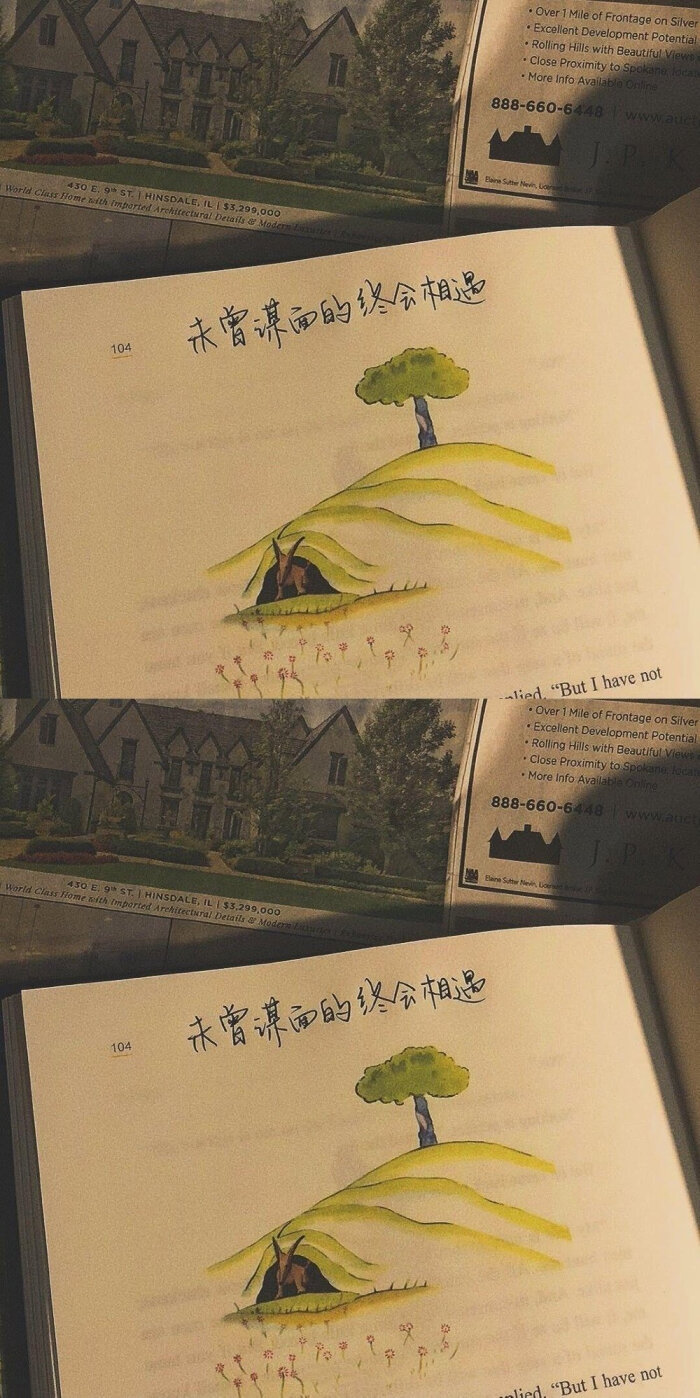 • Over 1 Mile of Frontage on Silver
• Excellent Development Potential
• Rolling Hills with Beautiful Views
• Close Proximity to Spokane, local
• More Info Available Online
888-660-6448 | www.auct
J. P. K
Elaine Sutter Nevin, Licensed Broker
430 E. 9th ST. | HINSDALE, IL | $3,299,000
World Class Home with Imported Architectural Details & Modern Luxuries
未曾谋面的终会相遇
104
plied. “But I have not
• Over 1 Mile of Frontage on Silver
• Excellent Development Potential
• Rolling Hills with Beautiful Views
• Close Proximity to Spokane, local
• More Info Available Online
888-660-6448 | www.auct
J. P. K
Elaine Sutter Nevin, Licensed Broker
430 E. 9th ST. | HINSDALE, IL | $3,299,000
World Class Home with Imported Architectural Details & Modern Luxuries
未曾谋面的终会相遇
104
plied. “But I have not